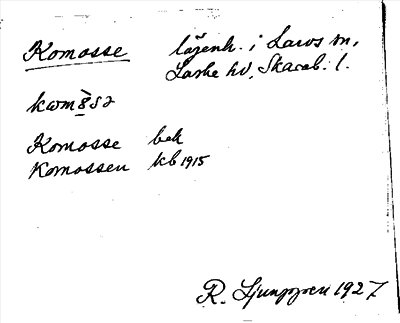 Komosse lägenh. i Laros sn,
Laske hd, Skarab. l.
Komosse bek
Komossen kb 1915
R. Ljunggren 1927